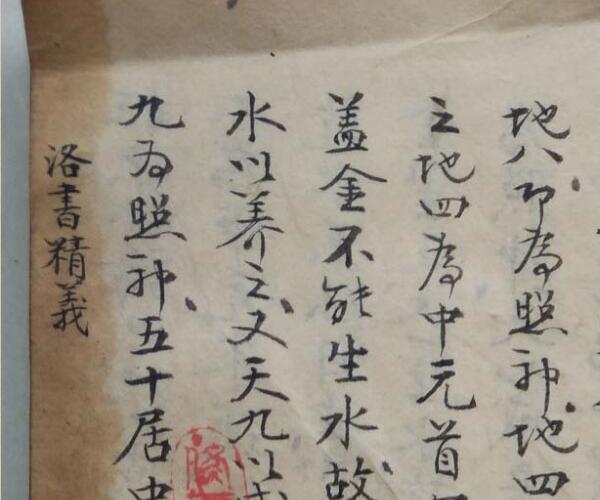 地八即為照神地四
之地四為中元首
盖金不能生水故
水以养之又天九以
九為照神五十居中
洛書精義